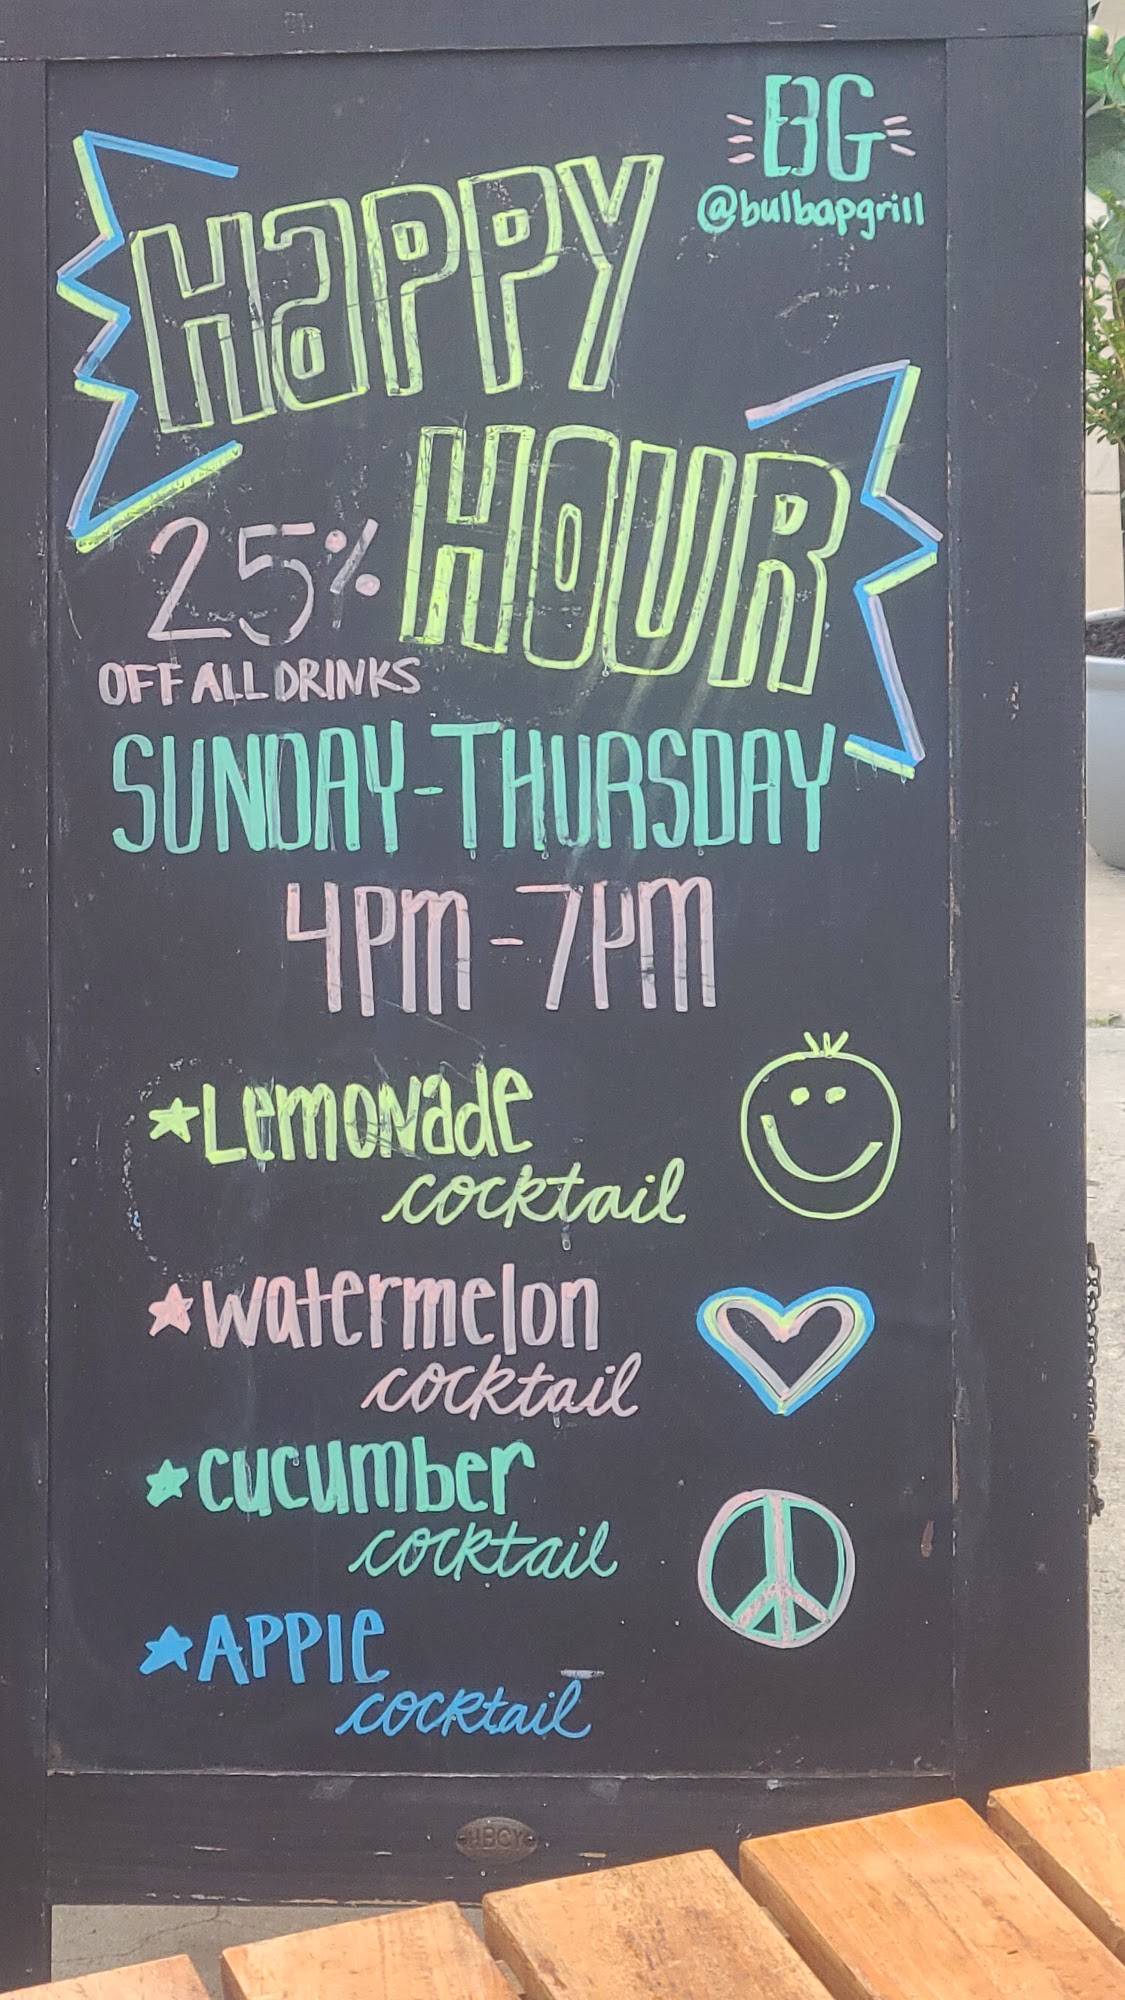 BG
@bulbapgrill
HaPPY
HOUR
25%
OFF ALL DRINKS
SUNDAY-THURSDAY
4PM-7PM
★Lemonade
cocktail
★watermelon
cocktail
★cucumber
cocktail
★APPlE
cocktail
HBCY